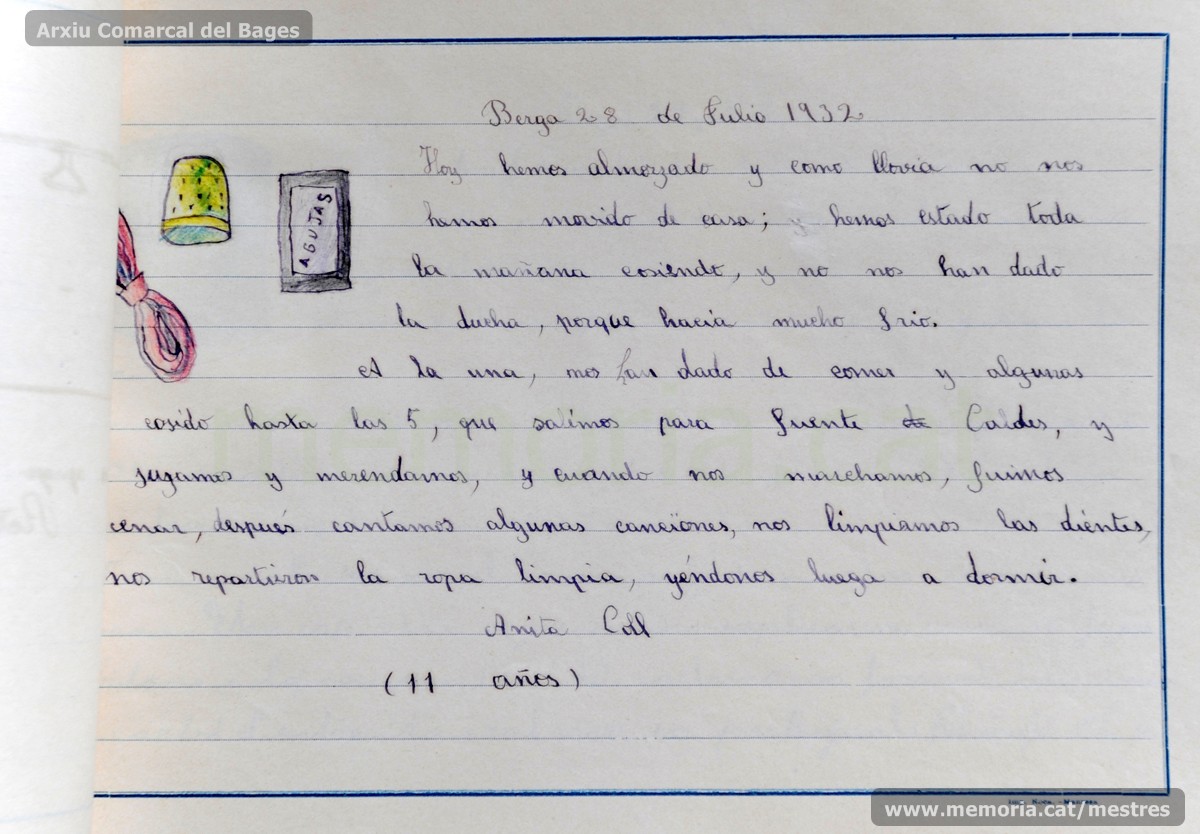 Arxiu Comarcal del Bages
Berga 28 de Julio 1932
Hoy hemos almorzado y como llovia no nos
hamos movido de casa; y hemos estado toda
AGUJAS
la mañana cosiendo, y no nos han dado
la ducha, porque hacia mucho frio.
A la una, nos han dado de comer y algunas
cosido hasta las 5, que salimos para fuente de Caldes, y
jugamos y merendamos, y cuando nos marchamos, fuimos
cenar, después cantamos algunas canciones, nos limpiamos las diéntes,
nos repartieron la ropa limpia, yéndonos luega a dormir.
Anita Coll
(11 años)
memoria.cat
www.memoria.cat/mestres